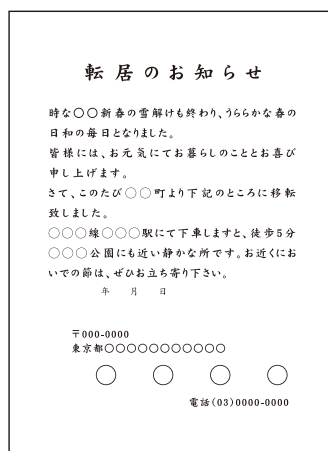 転居のお知らせ
時な〇〇新春の雪解けも終わり、うららかな春の
日和の毎日となりました。
皆様には、お元気にてお暮らしのこととお喜び
申し上げます。
さて、このたび〇〇町より下記のところに移転
致しました。
〇〇〇線〇〇〇駅にて下車しますと、徒歩5分
〇〇〇公園にも近い静かな所です。お近くにお
いでの節は、ぜひお立ち寄り下さい。
年　月　日
〒000-0000
東京都〇〇〇〇〇〇〇〇〇〇〇
〇　〇　〇　〇
電話(03)0000-0000